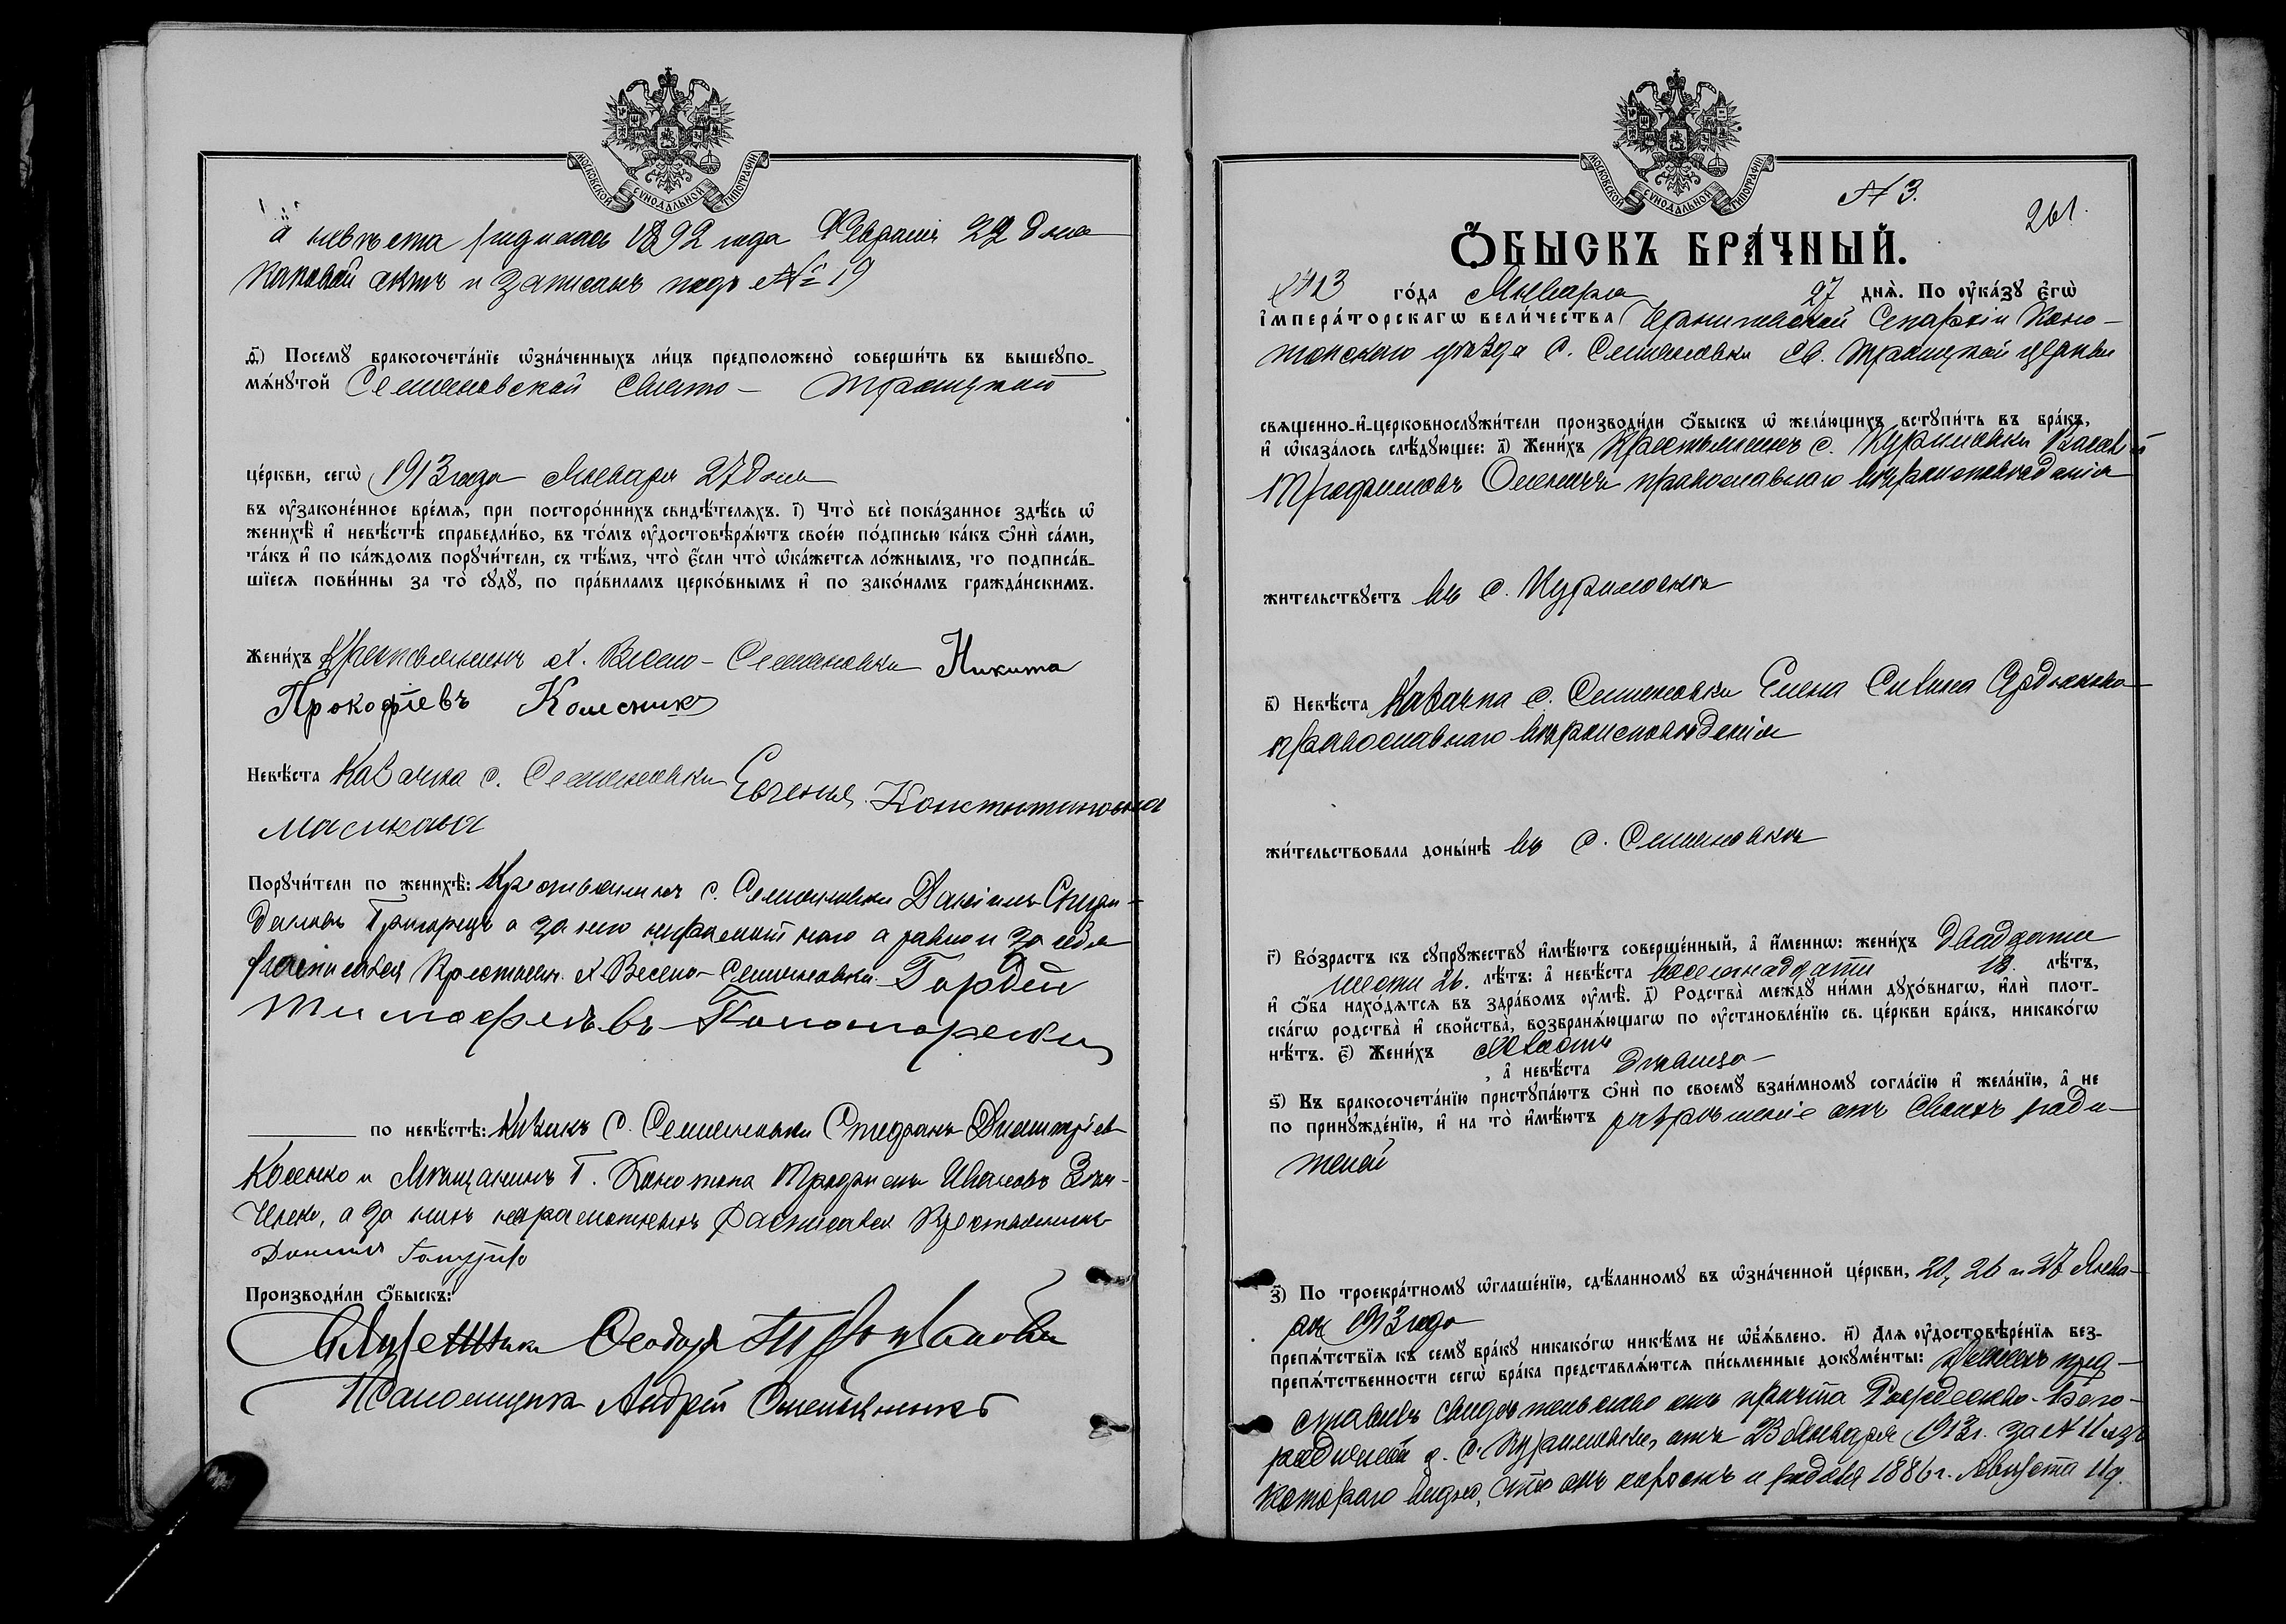 МОСКОВСКОЙ СѴНОДАЛЬНОЙ ТИПОГРАФІИ
а невѣста родилась 1892 года Февраля 22 дня
каковой актъ и записанъ подъ № 19
ѳ҃) Посемꙋ̀ бракосочета́нїе ѡ҆зна́ченныхъ ли́цъ предположено̀ соверши́ть въ вышеꙋпо-
мѧ́нꙋтой Семеновской Свято- Троицкой
це́ркви, сегѡ̀ 1913 года Января 27 дня
въ ᲂу҆законе́нное вре́мѧ, при посторо́ннихъ свидѣ́телѧхъ. і҃) Что̀ всѐ пока́занное здѣ́сь ѡ҆
женихѣ̀ и҆ невѣ́стѣ справедли́во, въ то́мъ ᲂу҆достовѣрѧ́ютъ свое́ю по́дписью ка́къ ѻ҆нѝ са́ми,
та́къ и҆ по ка́ждомъ порꙋчи́тели, съ тѣ́мъ, что̀ є҆́сли что̀ ѡ҆ка́жетсѧ ло́жнымъ, то подписа́в-
шїесѧ пови́нны за то̀ сꙋдꙋ̀, по пра́виламъ церко́внымъ и҆ по зако́намъ гражда́нскимъ.
Жени́хъ Крестьянинъ х. Весело-Семеновки Никита
Прокофіевъ Колесникъ
Невѣ́ста Казачка с. Семеновки Евгенія Константиновна
Порꙋчи́тели по женихѣ̀: Крестьянинъ с. Семеновки Даніилъ Спири-
доновъ а за него неграмотнаго а равно и за себя
расписался Крестьян. х. Весело-Семеновки Гордей
Тимофеевъ Пономаренко
по невѣ́стѣ: Казакъ с. Семеновки Стефанъ Дмитріев
Косенко и Мѣщанинъ г. Конотопа Трофимъ Ивановъ
а за нихъ неграмотныхъ расписался Крестьянинъ
Даніилъ
Производи́ли ѻ҆́быскъ:
Священникъ Ѳеодоръ
Псаломщикъ Андрей
МОСКОВСКОЙ СѴНОДАЛЬНОЙ ТИПОГРАФІИ
№ 3.
261.
Ѻ҆́БЫСКЪ БРА́ЧНЫЙ.
1913 го́да Января 27 днѧ̀. По ᲂу҆ка́зꙋ є҆гѡ̀
і҆мпера́торскагѡ вели́чества Черниговской Епархіи Коно-
топскаго уѣзда с. Семеновки Св. Троицкой церкви
свѧщенно-и҆-церковнослꙋжи́тели производи́ли ѻ҆́быскъ ѡ҆ жела́ющихъ встꙋпи́ть въ бра́къ,
и҆ ѡ҆каза́лось слѣ́дꙋющее: а҃) Жени́хъ Крестьянинъ с. Куриловки
Трофимовъ православнаго вѣроисповѣданія
жи́тельствꙋетъ въ с. Куриловкѣ
в҃) Невѣ́ста Казачка с. Семеновки Елена Савина Сердюкова
православнаго вѣроисповѣданія
жи́тельствовала доны́нѣ въ с. Семеновкѣ
г҃) Во́зрастъ къ сꙋпрꙋ́жествꙋ и҆мѣ́ютъ соверше́нный, а҆ и҆́менно: жени́хъ двадцати
шести 26. лѣ́тъ: а҆ невѣ́ста восемнадцати 18. лѣ́тъ,
и҆ ѻ҆́ба нахо́дѧтсѧ въ здра́вомъ ᲂу҆мѣ̀. д҃) Родства̀ междꙋ̀ ни́ми дꙋхо́внагѡ, и҆лѝ плот-
ска́гѡ родства̀ и҆ свойства̀, возбранѧ́ющагѡ по ᲂу҆становле́нїю св. це́ркви бра́къ, никако́гѡ
нѣ́тъ. є҃) Жени́хъ холостъ
, а҆ невѣ́ста дѣвица
ѕ҃) Къ бракосочета́нїю пристꙋпа́ютъ ѻ҆нѝ по своемꙋ̀ взаи́мномꙋ согла́сїю и҆ жела́нїю, а҆ не
по принꙋжде́нїю, и҆ на то̀ и҆мѣ́ютъ разрѣшеніе отъ своихъ роди-
телей
з҃) По троекра́тномꙋ ѡ҆глаше́нїю, сдѣ́ланномꙋ въ ѡ҆зна́ченной це́ркви, 20, 26 и 27 Янва-
ря 1913 года
препѧ́тствїѧ къ семꙋ̀ бра́кꙋ никако́гѡ никѣ́мъ не ѡ҆б̾ѧ́влено. и҃) Длѧ ᲂу҆достовѣре́нїѧ без-
препѧ́тственности сегѡ̀ бра́ка представлѧ́ютсѧ пи́сьменные докꙋме́нты: Женихъ пред-
ставилъ свидѣтельство отъ причта Рождество-Бого-
родичной ц. с. Куриловки, отъ 23 Января 1913 г. за № 11 изъ
котораго видно, что онъ холостъ и родился 1886 г. Августа 11 д.